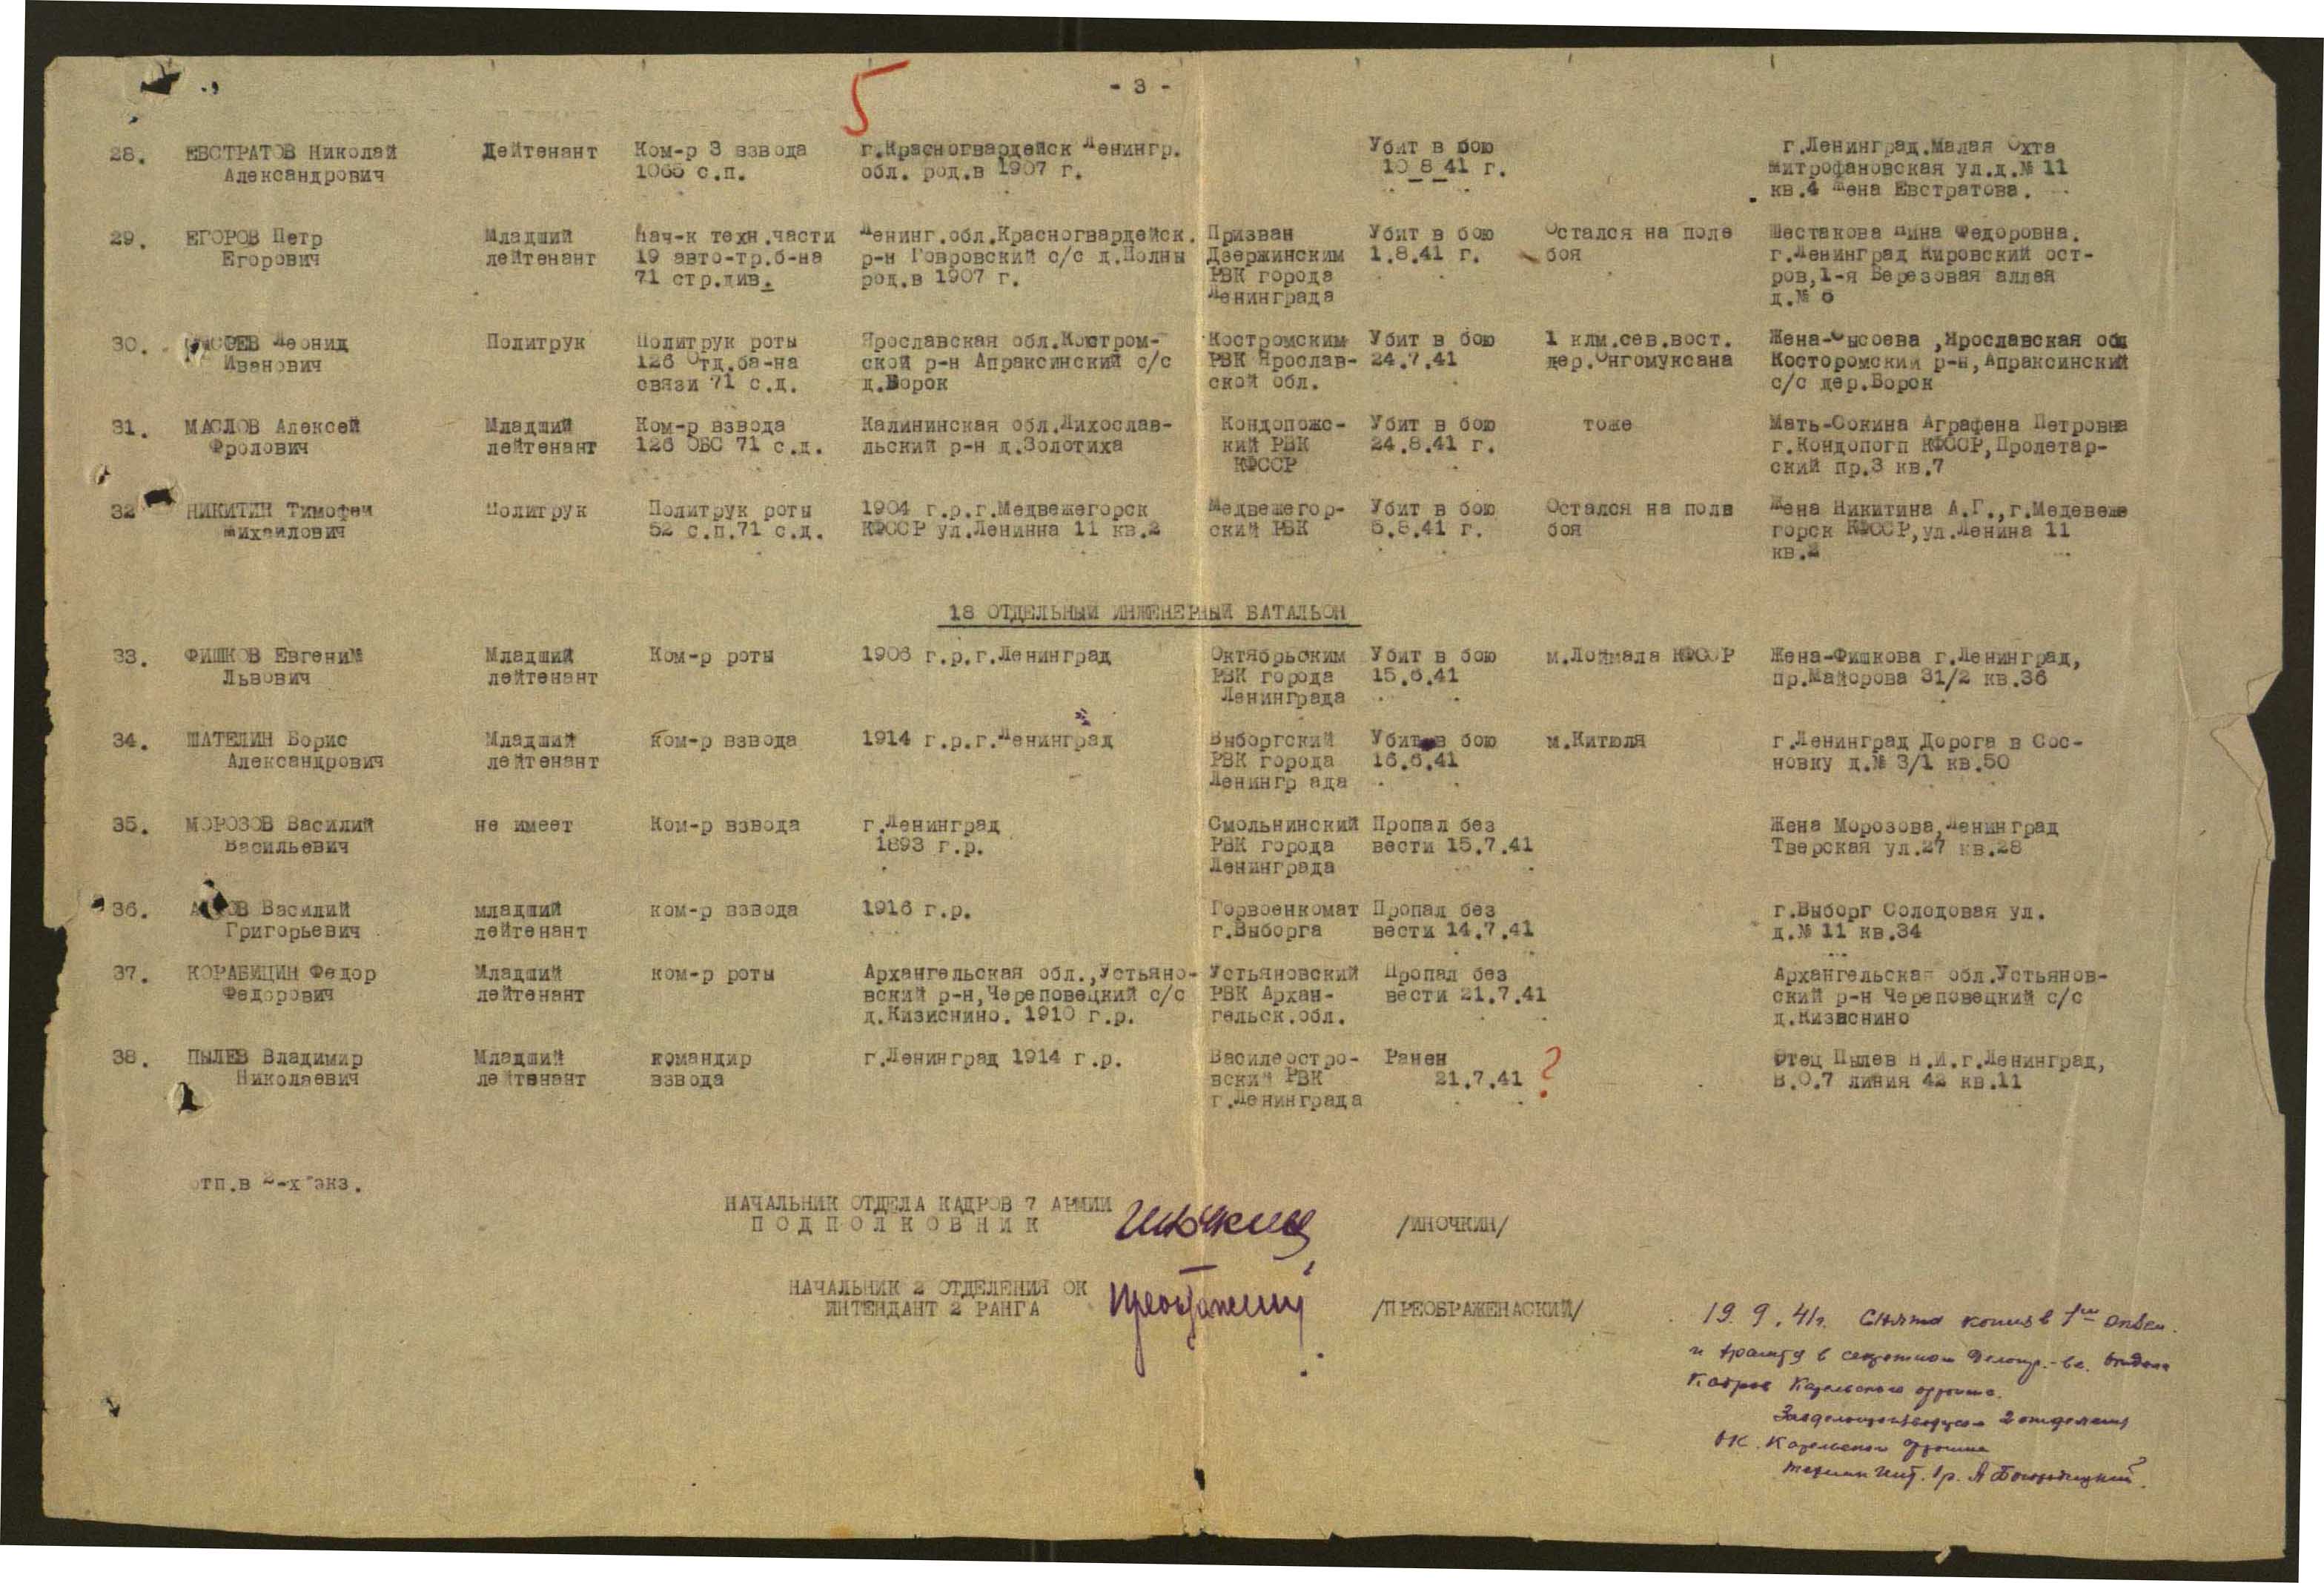 5
- 3 -
28. ЕВСТРАТОВ Николай Дейтенант Ком-р 3 взвода г.Красногвардейск Ленингр. Убит в бою г.Ленинград.Малая Охта
Александрович 1065 с.п. обл. род.в 1907 г. 10_8_41 г. Митрофановская ул.д.№ 11
кв.4 жена Евстратова.
29. ЕГОРОВ Петр Младший Нач-к техн.части Ленинг.обл.Красногвардейск. Призван Убит в бою Остался на поле Шестакова Нина Федоровна.
Егорович лейтенант 19 авто-тр.б-на р-н Говровский с/с д.Полны Дзержинским 1.8.41 г. боя г.Ленинград Кировский ост-
71 стр.див. род.в 1907 г. РВК города ров,1-я Березовая аллея
Ленинграда д.№ 6
30. Леонид Политрук Политрук роты Ярославская обл.Костром- Костромским Убит в бою 1 клм.сев.вост. Жена-Сысоева ,Ярославская обл
Иванович 126 Отд.ба-на ской р-н Апраксинский с/с РВК Ярослав- 24.7.41 дер.Онгомуксана Косторомский р-н,Апраксинский
связи 71 с.д. д.Борок ской обл. с/с дер.Борок
31. МАСЛОВ Алексей Младший Ком-р взвода Калининская обл.Лихослав- Кондопожс- Убит в бою тоже Мать-Сокина Аграфена Петровна
Фролович лейтенант 126 ОБС 71 с.д. льский р-н д.Золотиха кий РВК 24.8.41 г. г.Кондопогп КФССР,Пролетар-
КФССР ский пр.3 кв.7
32 НИКИТИН Тимофей Политрук Политрук роты 1904 г.р.г.Медвежегорск Медвежегор- Убит в бою Остался на поле Жена Никитина А.Г.,г.Медевеже
Михайлович 52 с.п.71 с.д. КФССР ул.Ленинна 11 кв.2 ский РВК 41 г. боя горск КФССР,ул.Ленина 11
кв.2
18 ОТДЕЛЬНЫЙ ИНЖЕНЕРНЫЙ БАТАЛЬОН
33. ФИШКОВ Евгений Младший Ком-р роты 1906 г.р.г.Ленинград Октябрьским Убит в бою м.Лоймала КФССР Жена-Фишкова г.Ленинград,
Львович лейтенант РВК города 15.6.41 пр.Майорова 31/2 кв.36
Ленинграда
34. ШАТЕЛИН Борис Младший Ком-р взвода 1914 г.р.г.Ленинград Выборгский Убит в бою м.Китюля г.Ленинград Дорога в Сос-
Александрович лейтенант РВК города 16.6.41 новку д.№ 3/1 кв.50
Ленингр ада
35. МОРОЗОВ Василий не имеет Ком-р взвода г.Ленинград Смольнинский Пропал без Жена Морозова,Ленинград
Васильевич 1893 г.р. РВК города вести 15.7.41 Тверская ул.27 кв.28
Ленинграда
36. Василий младший ком-р взвода 1916 г.р. Горвоенкомат Пропал без г.Выборг Солодовая ул.
Григорьевич лейтенант г.Выборга вести 14.7.41 д.№ 11 кв.34
37. КОРАБИЦИН Федор Младший ком-р роты Архангельская обл.,Устьяно- Устьяновский Пропал без Архангельская обл.Устьянов-
Федорович лейтенант вский р-н,Череповецкий с/с РВК Архан- вести 21.7.41 ский р-н Череповецкий с/с
д.Кизиснино. 1910 г.р. гельск.обл. д.Кизиснино
38. ПЫЛЕВ Владимир Младший командир г.Ленинград 1914 г.р. Василеостро- Ранен ? Отец Пылев Н.И.г.Ленинград,
Николаевич лейтенант взвода вский РВК 21.7.41 В.О.7 линия 42 кв.11
г.Ленинграда
отп.в 2-х экз.
НАЧАЛЬНИК ОТДЕЛА КАДРОВ 7 АРМИИ
ПОДПОЛКОВНИК Иночкин /ИНОЧКИН/
НАЧАЛЬНИК 2 ОТДЕЛЕНИЯ ОК
ИНТЕНДАНТ 2 РАНГА /ПРЕОБРАЖЕНАСКИЙ/
19. 9. 41г. Снята копия в 1
и в секретном
Кадров Карельского фронта.
2 отделения
ОК. Карельского фронта
техник инт. 1 р.